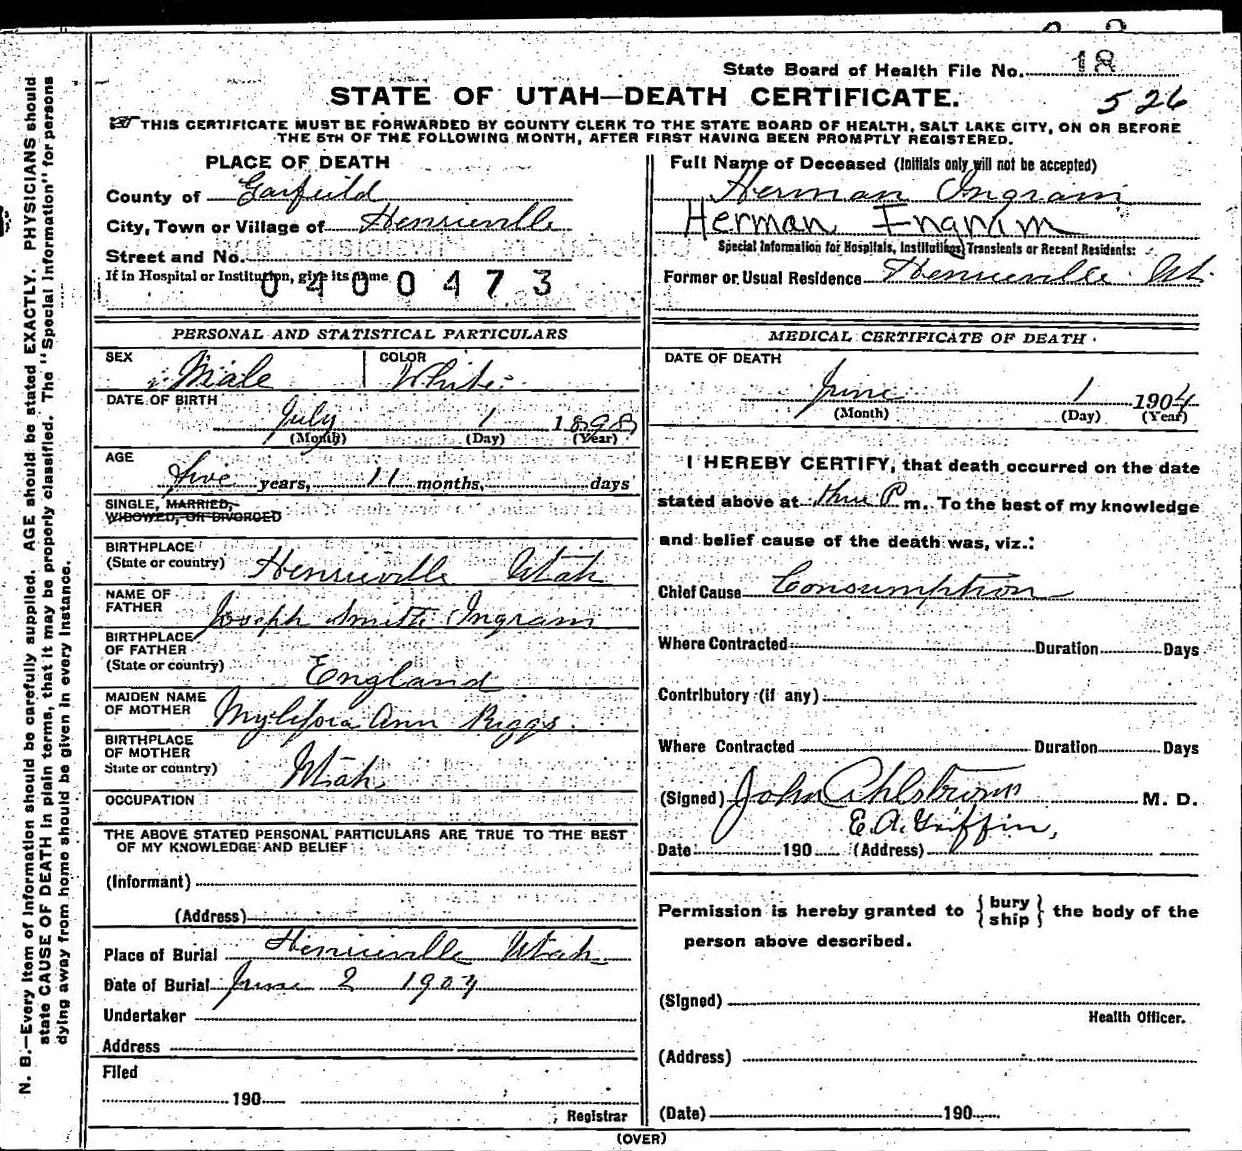 State Board of Health File No. 18
526
STATE OF UTAH—DEATH CERTIFICATE.
THIS CERTIFICATE MUST BE FORWARDED BY COUNTY CLERK TO THE STATE BOARD OF HEALTH, SALT LAKE CITY, ON OR BEFORE
THE 5TH OF THE FOLLOWING MONTH, AFTER FIRST HAVING BEEN PROMPTLY REGISTERED.
PLACE OF DEATH
County of Garfield
City, Town or Village of Henrieville
Street and No.
If in Hospital or Institution, give its name
0400473
Full Name of Deceased (Initials only will not be accepted)
Herman Ingram
Herman Ingram
Special Information for Hospitals, Institutions, Transients or Recent Residents:
Former or Usual Residence Henrieville Ut.
PERSONAL AND STATISTICAL PARTICULARS
SEX Male COLOR White
DATE OF BIRTH
July 1 1898
(Month) (Day) (Year)
AGE
five years, 11 months, days
SINGLE, MARRIED,
WIDOWED, OR DIVORCED
BIRTHPLACE
(State or country) Henrieville Utah
NAME OF
FATHER Joseph Smith Ingram
BIRTHPLACE
OF FATHER
(State or country) England
MAIDEN NAME
OF MOTHER Ann Riggs
BIRTHPLACE
OF MOTHER
State or country) Utah
OCCUPATION
THE ABOVE STATED PERSONAL PARTICULARS ARE TRUE TO THE BEST
OF MY KNOWLEDGE AND BELIEF
(Informant)
(Address)
Place of Burial Henrieville Utah
Date of Burial June 2 1904
Undertaker
Address
Filed
190
Registrar
MEDICAL CERTIFICATE OF DEATH
DATE OF DEATH
June 1 1904
(Month) (Day) (Year)
I HEREBY CERTIFY, that death occurred on the date
stated above at P m. To the best of my knowledge
and belief cause of the death was, viz.:
Chief Cause Consumption
Where Contracted Duration Days
Contributory (if any)
Where Contracted Duration Days
(Signed) John Ahlstrom M. D.
E. A. Griffin,
Date 190 (Address)
Permission is hereby granted to { bury
ship } the body of the
person above described.
(Signed)
Health Officer.
(Address)
(Date) 190
(OVER)
N. B.—Every item of information should be carefully supplied. AGE should be stated EXACTLY. PHYSICIANS should
state CAUSE OF DEATH in plain terms, that it may be properly classified. The "Special Information" for persons
dying away from home should be given in every instance.